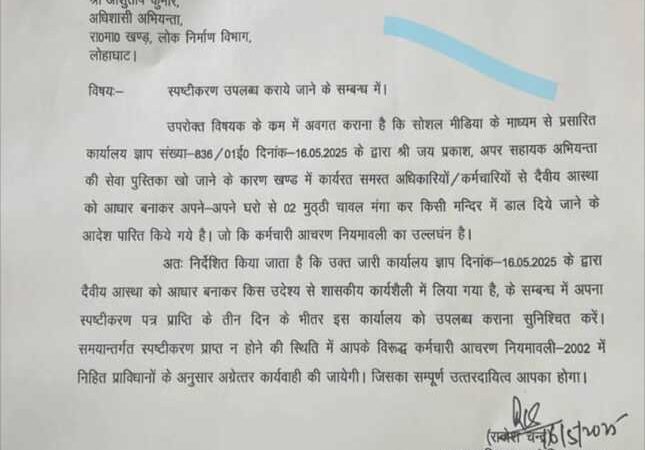 श्री आशुतोष कुमार,
अधिशासी अभियन्ता,
रा०मा० खण्ड, लोक निर्माण विभाग,
लोहाघाट।
विषयः– स्पष्टीकरण उपलब्ध कराये जाने के सम्बन्ध में।
उपरोक्त विषयक के कम में अवगत कराना है कि सोशल मीडिया के माध्यम से प्रसारित
कार्यालय ज्ञाप संख्या–836/01ई0 दिनांक–16.05.2025 के द्वारा श्री जय प्रकाश, अपर सहायक अभियन्ता
की सेवा पुस्तिका खो जाने के कारण खण्ड में कार्यरत समस्त अधिकारियों/कर्मचारियों से दैवीय आस्था
को आधार बनाकर अपने–अपने घरो से 02 मुठ्ठी चावल मंगा कर किसी मन्दिर में डाल दिये जाने के
आदेश पारित किये गये है। जो कि कर्मचारी आचरण नियमावली का उल्लघंन है।
अतः निर्देशित किया जाता है कि उक्त जारी कार्यालय ज्ञाप दिनांक–16.05.2025 के द्वारा
दैवीय आस्था को आधार बनाकर किस उदेश्य से शासकीय कार्यशैली में लिया गया है, के सम्बन्ध में अपना
स्पष्टीकरण पत्र प्राप्ति के तीन दिन के भीतर इस कार्यालय को उपलब्ध कराना सुनिश्चित करें।
समयान्तर्गत स्पष्टीकरण प्राप्त न होने की स्थिति में आपके विरूद्ध कर्मचारी आचरण नियमावली–2002 में
निहित प्राविधानों के अनुसार अग्रेत्तर कार्यवाही की जायेगी। जिसका सम्पूर्ण उत्तरदायित्व आपका होगा।
(राजेश चन्द्र) 16/5/2025